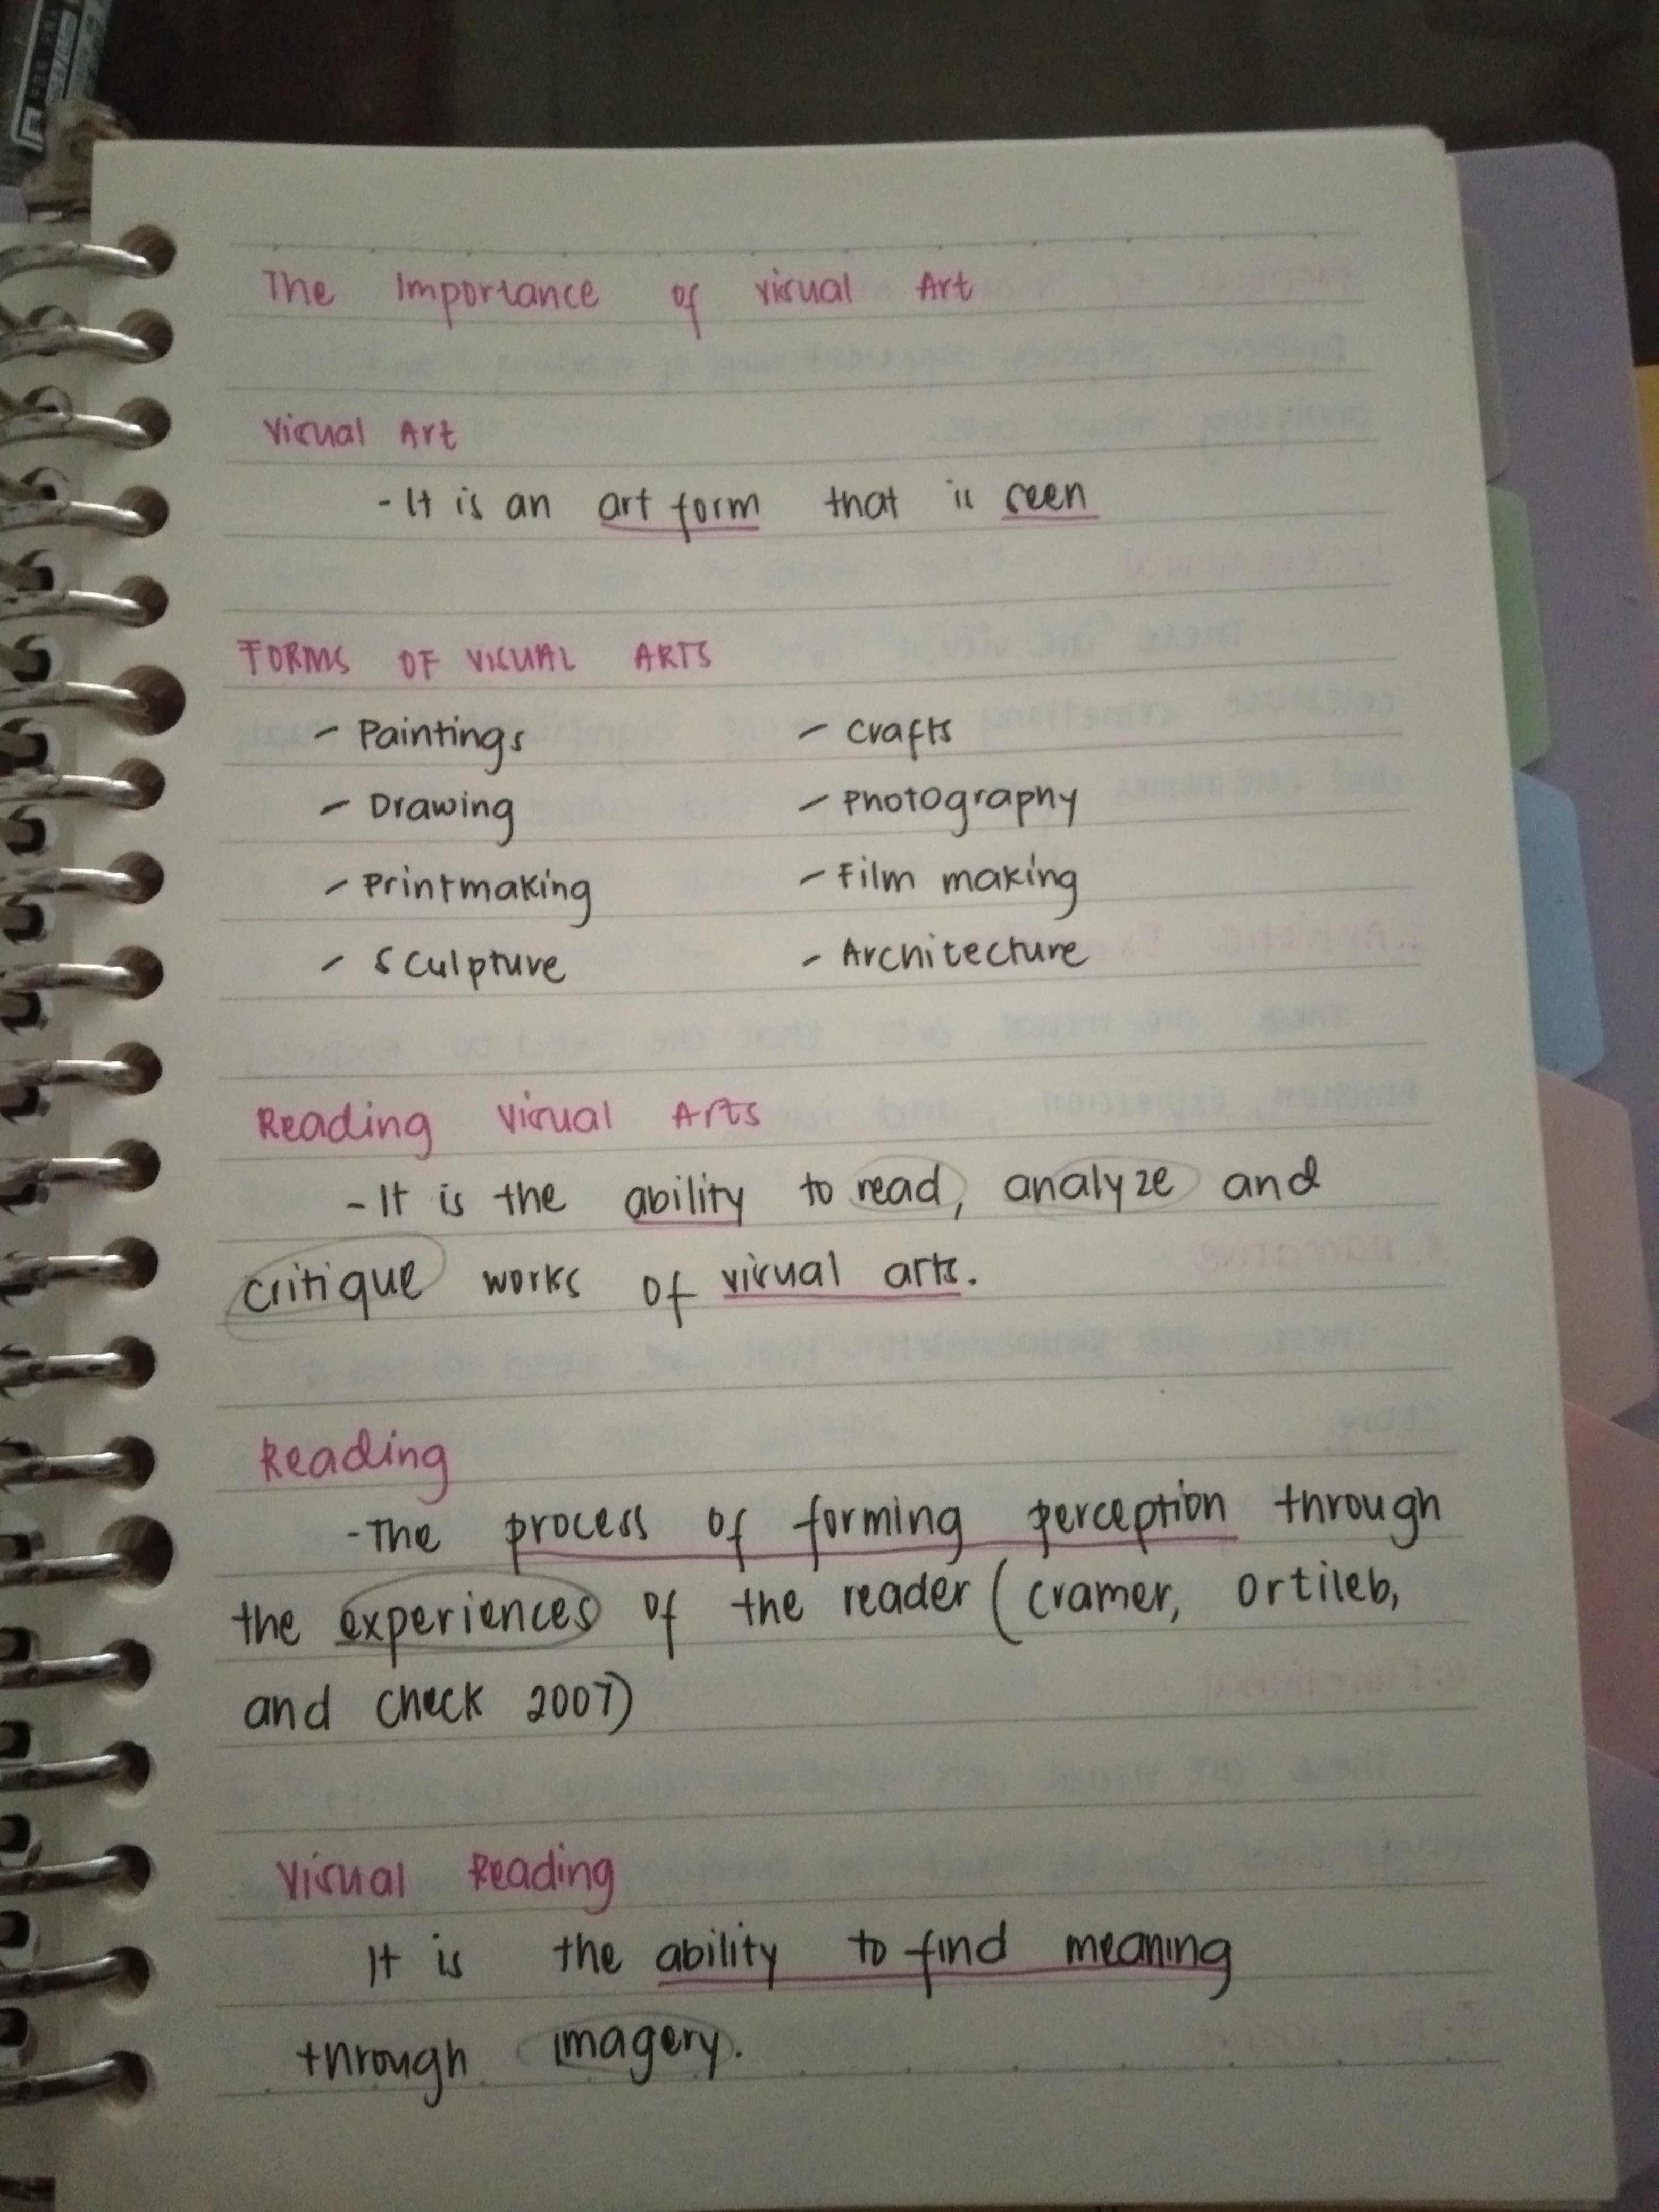 The Importance of visual Art
Visual Art
- It is an art form that is seen
FORMS OF VISUAL ARTS
- Paintings - Crafts
- Drawing - Photography
- Printmaking - Film making
- Sculpture - Architecture
Reading Visual Arts
- It is the ability to read, analyze and
critique works of visual arts.
Reading
- The process of forming perception through
the experiences of the reader (cramer, ortileb,
and check 2007)
Visual Reading
It is the ability to find meaning
through imagery.